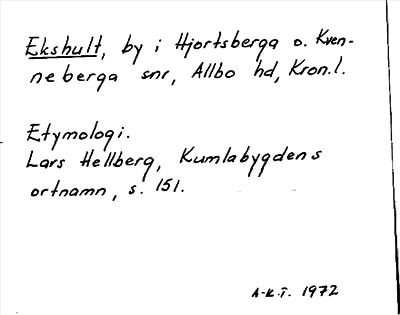 Ekshult, by i Hjortsberga o. Kven-
neberga snr, Allbo hd, Kron.l.
Etymologi.
Lars Hellberg, Kumlabygdens
ortnamn, s. 151.
A-K.T. 1972